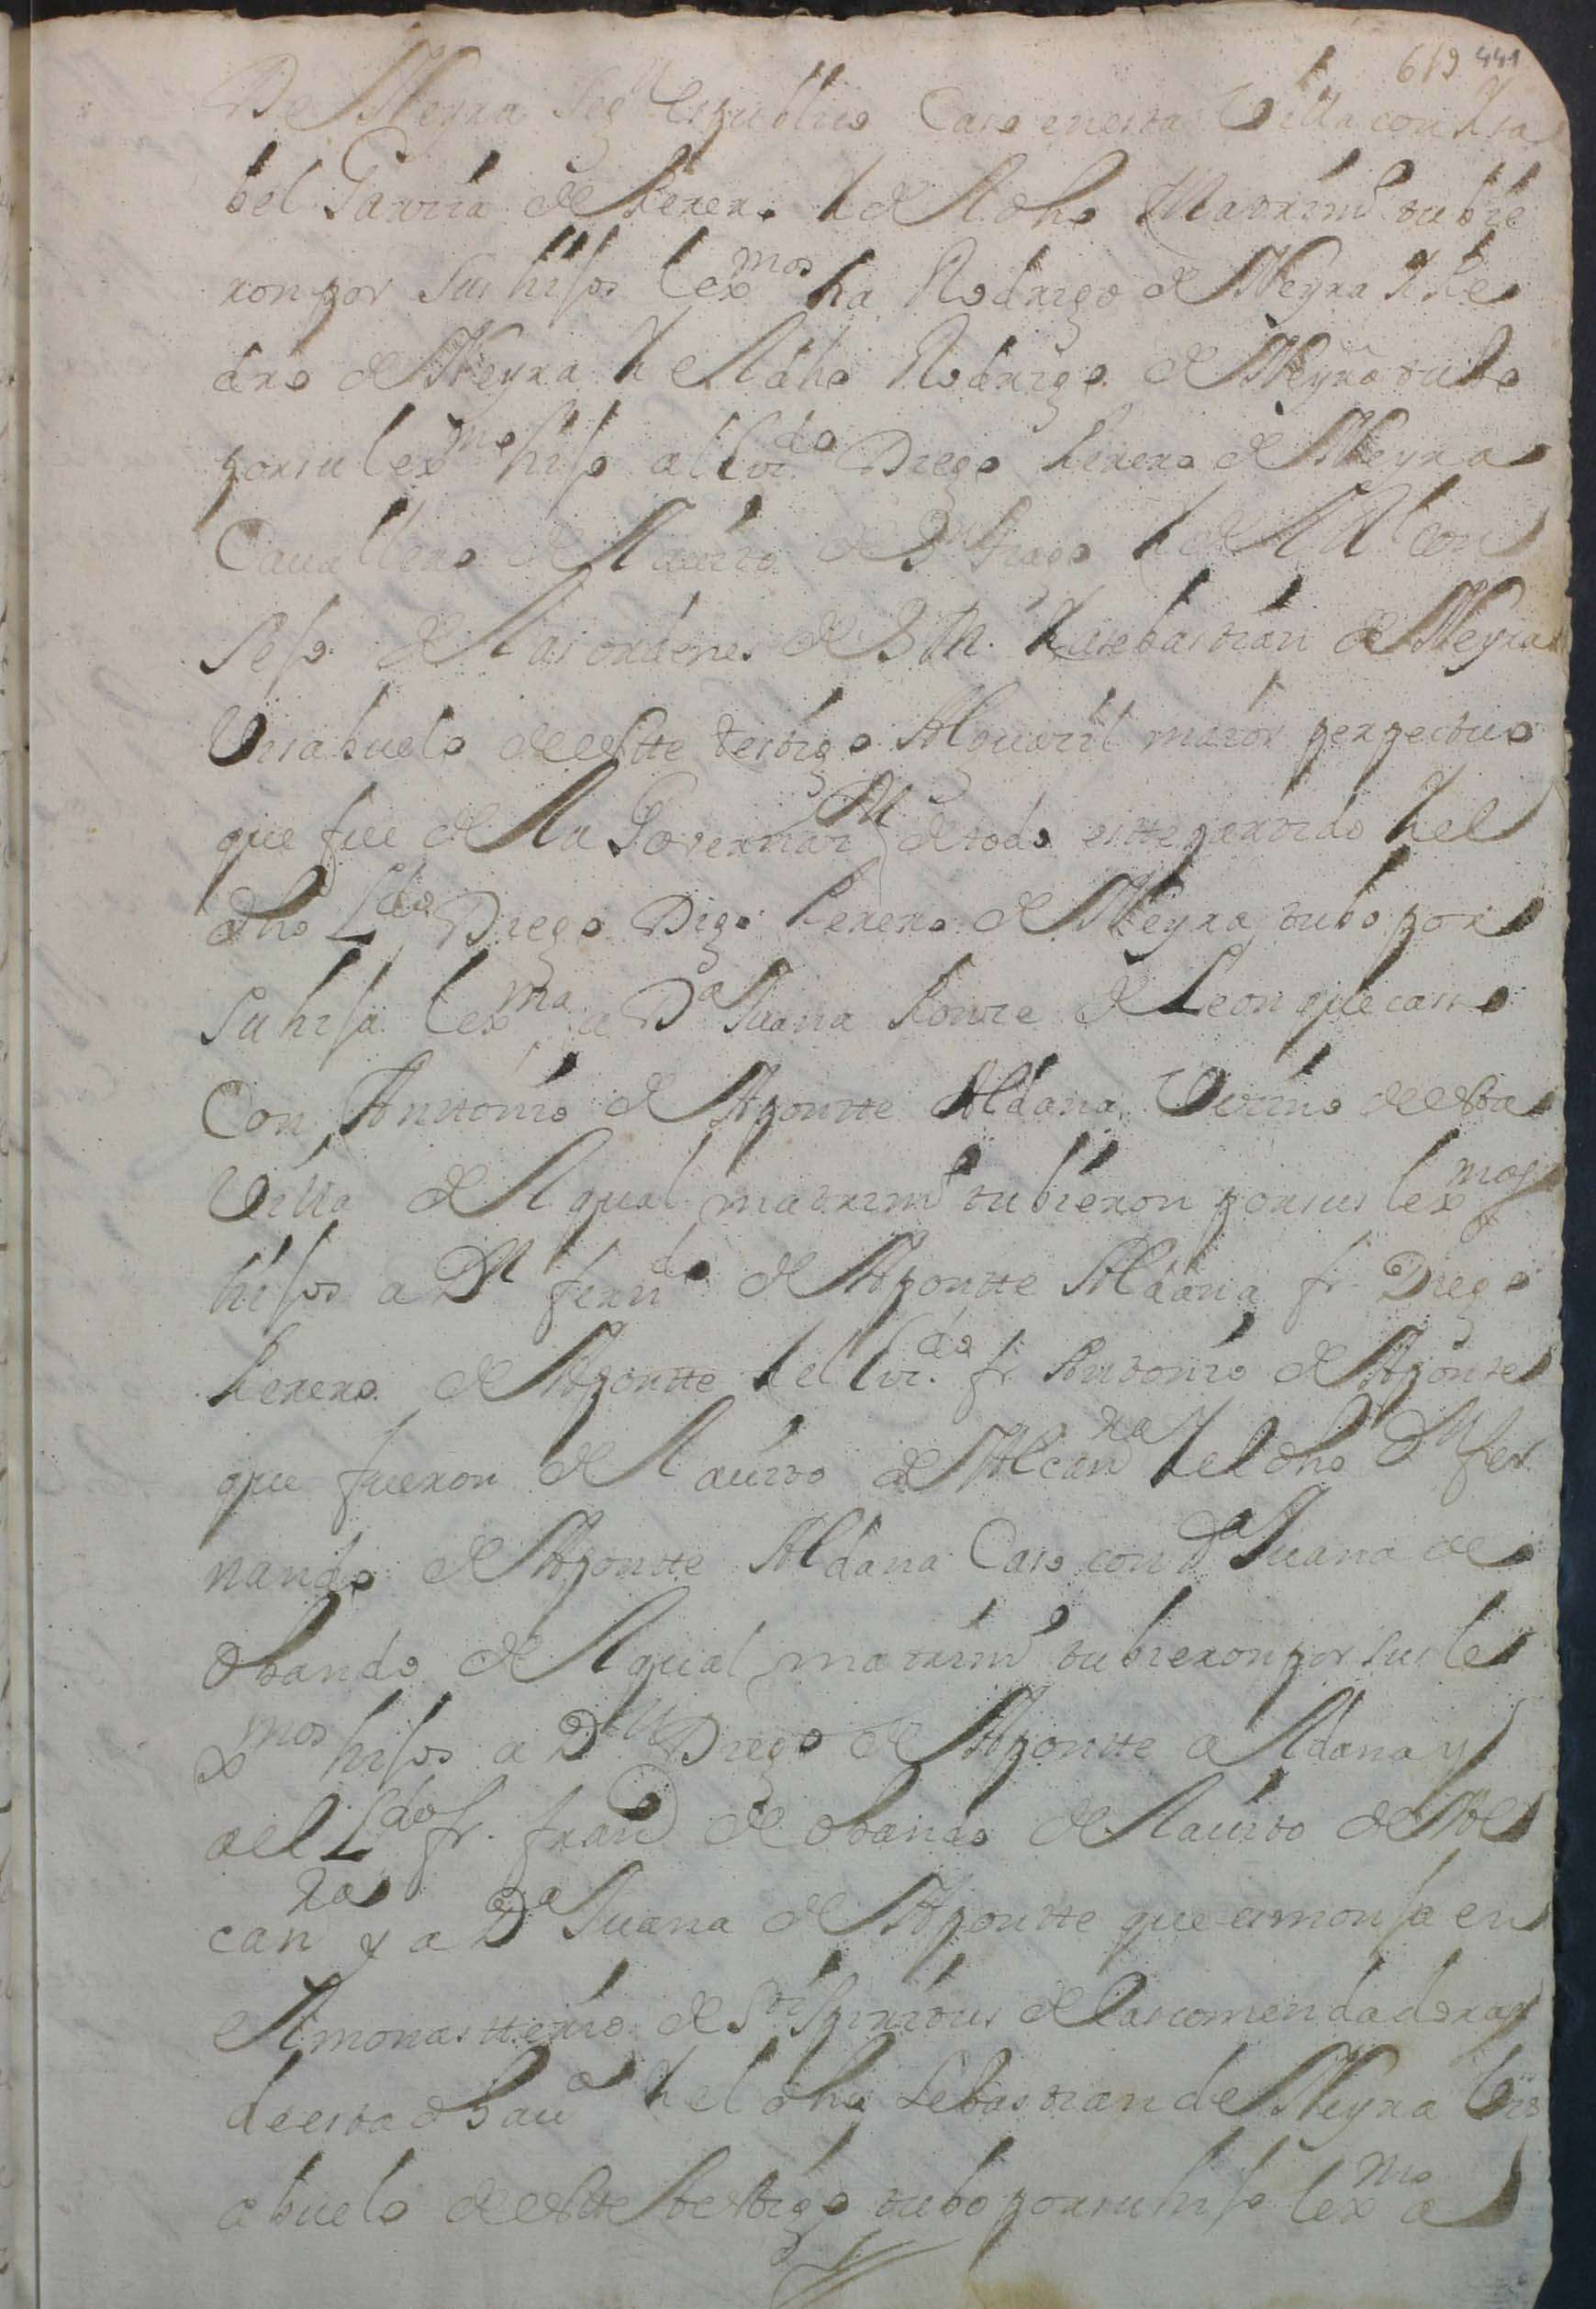 619 441
De Neyra Seg^n es publico Caso enesta Villa con Ysa
bel Garcia de Perero Y del dho Matrim^o tubie
ron por sus hijos lex^mos ha Rodrigo de Neyra Y Pe
dro de Neyra Y el dho Rodrigo de Neyra tubo
por su lex^mo hijo al lic^do Diego Perero de Neyra
Cauallero del auito de S^n tiago Y del R^l Con
sejo de las ordenes de S M. Y a sebastian de Neyra
Visabuelo de este testigo Alguacil maior perpetuo
que fue de la Governaci^on de todo este partido Y el
dho L^do Diego Digo Perero de Neyra tubo por
su hija lex^ma a D^a Juana Ponze de Leon que casso
Con Antonio de Aponte Aldana Vecino de esta
Villa del qual matrim^o tubieron por sus lex^mos
hijos a D^n fern^do de Aponte Aldana fr. Diego
Perero de Aponte Y el lic.^do fr. Antonio de Aponte
que fueron del auito de Alcan^ra Y el dho D^n fer
nando de Aponte Aldana Caso con D^a Juana de
Obando del qual matrim^o tubieron por sus le
x^mos hijos a D^n Diego de Aponte Aldana y
al L^do fr. fran^co de Obando del auito de Al
can^ra y a D^a Juana de Aponte que es monja en
el monasterio de S^ti Spiritus de las comendadoras
de esta dha u^a Y el dho Sebastian de Neyra Vis
abuelo de este testigo tubo por su hijo lex^mo a